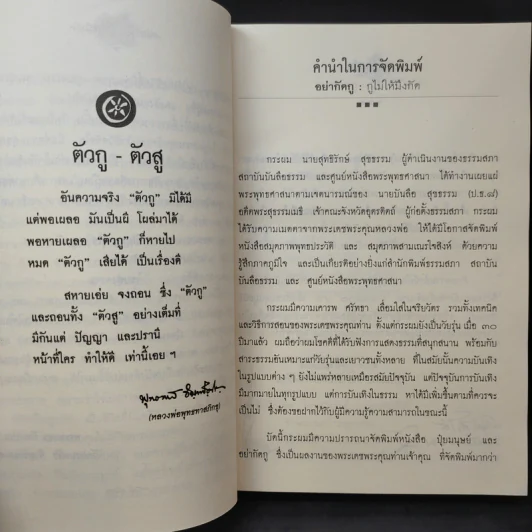 ตัวกู - ตัวสู
อันความจริง "ตัวกู" มิได้มี
แต่พอเผลอ มันเป็นผี โผล่มาได้
พอหายเผลอ "ตัวกู" ก็หายไป
หมด "ตัวกู" เสียได้ เป็นเรื่องดี
สหายเอ๋ย จงถอน ซึ่ง "ตัวกู"
และถอนทั้ง "ตัวสู" อย่างเต็มที่
มีกันแต่ ปัญญา และปรานี
หน้าที่ใคร ทำให้ดี เท่านี้เอย ฯ
(หลวงพ่อพุทธทาสภิกขุ)
คำนำในการจัดพิมพ์
อย่ากัดกู : กูไม่ให้มึงกัด
กระผม นายสุทธิรักษ์ สุขธรรม ผู้ดำเนินงานของธรรมสภา
สถาบันบันลือธรรม และศูนย์หนังสือพระพุทธศาสนา ได้ทำงานเผยแผ่
พระพุทธศาสนาตามเจตนารมณ์ของ นายบันลือ สุขธรรม (ป.ธ.๗)
อดีตพระสุธรรมเมธี เจ้าคณะจังหวัดอุตรดิตถ์ ผู้ก่อตั้งธรรมสภา กระผม
ได้รับความเมตตาจากพระเดชพระคุณหลวงพ่อ ให้ได้มีโอกาสจัดพิมพ์
หนังสือสมุดภาพพุทธประวัติ และ สมุดภาพสามเณรใจสิงห์ ด้วยความ
รู้สึกภาคภูมิใจ และเป็นเกียรติอย่างยิ่งแก่สำนักพิมพ์ธรรมสภา สถาบัน
บันลือธรรม และ ศูนย์หนังสือพระพุทธศาสนา
กระผมมีความเคารพ ศรัทธา เลื่อมใสในจริยวัตร รวมทั้งเทคนิค
และวิธีการสอนของพระเดชพระคุณท่าน ตั้งแต่กระผมยังเป็นวัยรุ่น เมื่อ ๓๐
ปีมาแล้ว ผมถือว่าผมโชคดีที่ได้รับฟังการแสดงธรรมที่สนุกสนาน พร้อมกับ
สาระธรรมอันเหมาะแก่วัยรุ่นและเยาวชนทั้งหลาย ที่ในสมัยนั้นความบันเทิง
ในรูปแบบต่าง ๆ ยังไม่แพร่หลายเหมือนสมัยปัจจุบัน แต่ปัจจุบันการบันเทิง
มีมากมายในทุกรูปแบบ แต่การบันเทิงในธรรม หาได้มีเพิ่มขึ้นตามที่ควรจะ
เป็นไม่ ซึ่งต้องขอฝากไว้กับผู้มีความรู้ความสามารถในขณะนี้
บัดนี้กระผมมีความปรารถนาจัดพิมพ์หนังสือ ปุ๋ยมนุษย์ และ
อย่ากัดกู ซึ่งเป็นผลงานของพระเดชพระคุณท่านเจ้าคุณ ที่จัดพิมพ์มากว่า